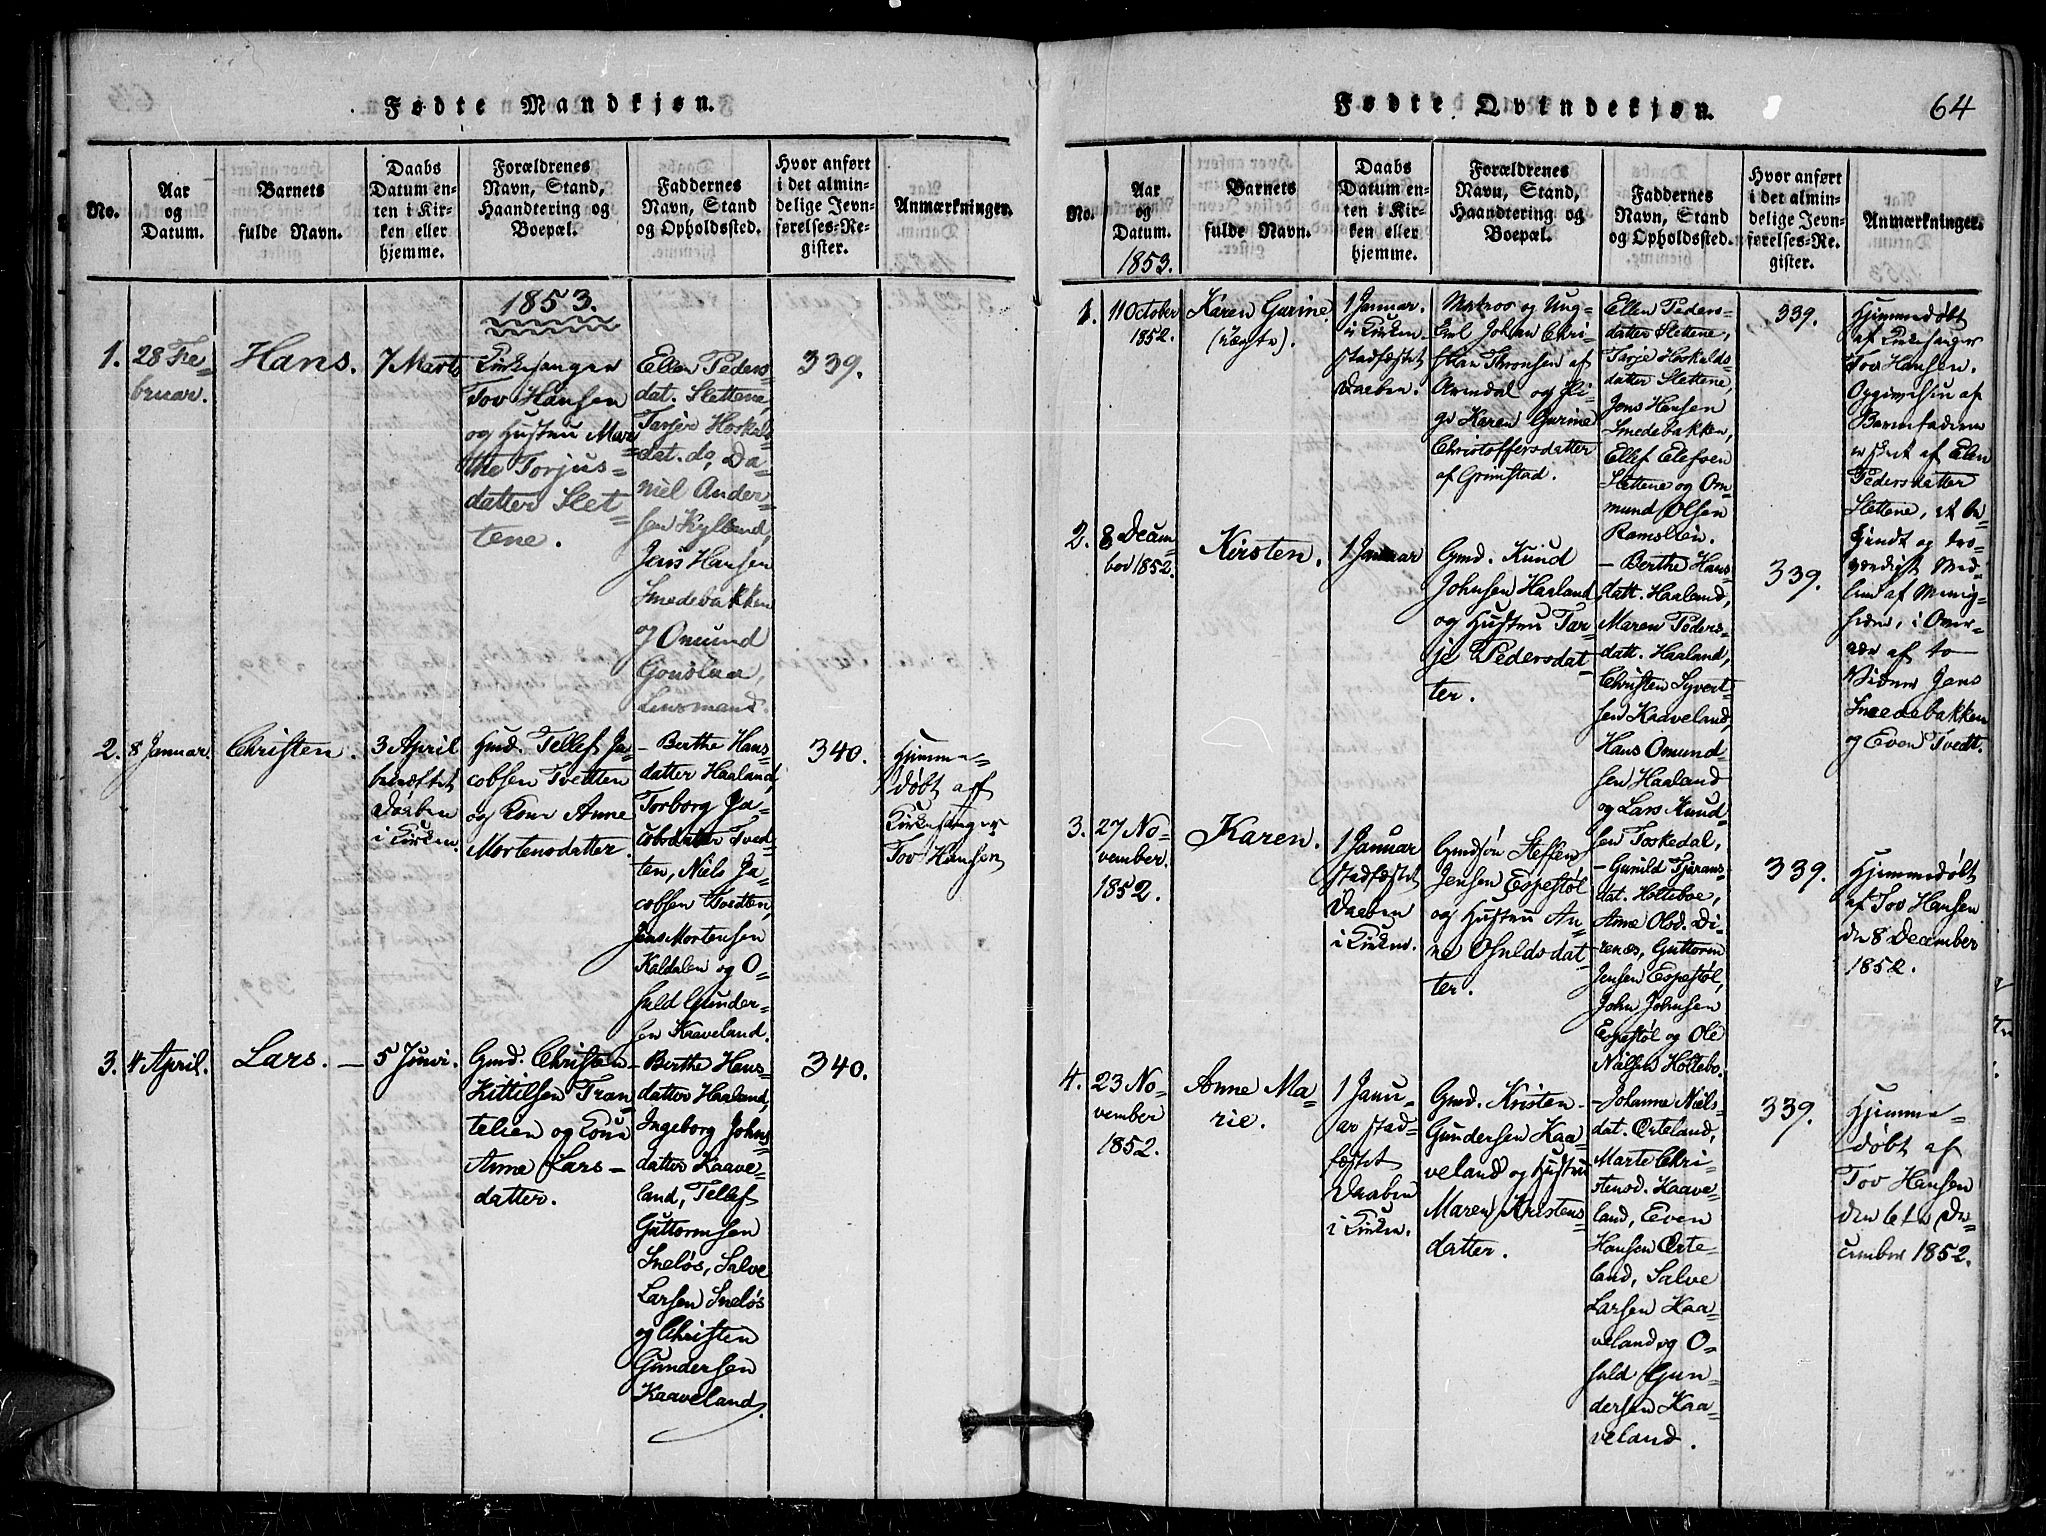 Fødte Mandkjøn.
No.
Aar
og
Datum.
Barnets
fulde Navn.
Daabs
Datum en-
ten i Kir-
ken eller
hjemme.
Forældrenes
Navn, Stand,
Haandtering og
Boepæl.
Faddernes
Navn, Stand
og Opholdssted.
Hvor anført
i det almin-
delige Jevn-
førelses-Re-
gister.
Anmærkninger.
1853.
1.
28 Fe-
bruar.
Hans.
7 Marts
Kirkesanger
Tov Hansen
og Hustru Mar-
the Torjus-
datter Slet-
tene.
Ellen Peders-
dat. Slettene,
Tarje Hoskolds-
dat. do, Da-
niel Ander-
sen Kylland,
Jens Hansen
Smedebakken
og Omund
Lensmand.
339.
2.
8 Januar.
Christen.
3 April
bekræftet
Daaben
i Kirken.
Gmd. Tellef Ja-
cobsen Tvedten
og Kone Anne
Mortensdatter.
- Berthe Hans-
datter Haaland,
Torborg Ja-
cobsdatter Tved-
ten, Niels Ja-
cobsen Tvedten,
Jens Mortensen
Kaldalen og O-
suld Gunder-
sen Kaaveland.
340.
Hjemme-
døbt af
Kirkesanger
Tov Hansen
3.
4 April.
Lars. —
5 Juni.
Gmd. Christen
Kittilsen Tran-
telien og Kone
Anne Lars-
datter.
- Berthe Hans-
datter Haaland,
Ingeborg Johns-
datter Kaave-
land, Tellef
Guttormsen
Sneløs, Salve
Larsen Sneløs
og Christen
Gundersen
Kaaveland.
340.
Fødte Qvindekjøn.
64
No.
Aar
og
Datum.
1853.
Barnets
fulde Navn.
Daabs
Datum en-
ten i Kir-
ken eller
hjemme.
Forældrenes
Navn, Stand,
Haandtering og
Boepæl.
Faddernes
Navn, Stand
og Opholdssted.
Hvor anført
i det almin-
delige Jevn-
førelses-Re-
gister.
Anmærkninger.
1.
11 October
1852.
Karen Gurine
(uægte).
1 Januar.
i Kirken
stadfæstet
Daaben.
Matros og Ung-
karl Johan Chri-
stian Thronsen af
Arendal og Pi-
ge Karen Gurine
Christoffersdatter
af Grimstad.
Ellen Peders-
datter Slettene,
Tarje Hoskolds-
datter Slettene,
Jens Hansen
Smedebakken,
Ellef Elefsen
Slettene og Om-
mund Olsen
Ramslien.
339.
Hjemmedøbt
af Kirkesanger
Tov Hansen.
Opgivelsen af
Barnefaderen
er skeet af Elen
Pedersdatter
Slettene, et be-
kjendt og tro-
værdigt Med-
lem af Menig-
heden, i Over-
vær af to
Vidner Jens
Smedebakken
og Even Tvedt.
2.
8 Decem-
ber 1852.
Kirsten.
1 Januar
Gmd. Knud
Johnsen Haaland
og Hustru Tar-
je Pedersdat-
ter.
- Berthe Hans-
datt. Haaland,
Maren Peders-
datt. Haaland,
Christen Syvert-
sen Kaaveland,
Hans Omund-
sen Haaland
og Lars Knud-
sen Toskedal,
339.
3.
27 No-
vember.
1852.
Karen.
1 Januar
stadfæstet
Daaben
i Kirken.
Gmdsøn Steffen
Jensen Espestøl
og Hustru An-
ne Osuldsdat-
ter.
- Gunild Tjarans-
dat. Holteboe,
Anne Olsd. Di-
renæs, Guttorm
Jensen Espestøl,
John Johnsen
Espestøl og Ole
Nielsen Holtebo.
339.
Hjemmedøbt
af Tov Hansen
den 8 December
1852.
4.
23 No-
vember
1852.
Anne Ma-
rie.
1 Janu-
ar stad-
fæstet
Daaben
i Kirken.
Gmd. Kristen
Gundersen Kaa-
veland og Hustru
Maren Kristens-
datter.
- Johanne Niels-
dat. Ørteland,
Marte Chri-
stensd. Kaave-
land, Even
Hansen Ørte-
land, Salve
Larsen Kaa-
veland og O-
suld Gun-
dersen Kaa-
veland.
339.
Hjemme-
døbt af
Tov Hansen
den 6te De-
cember 1852.